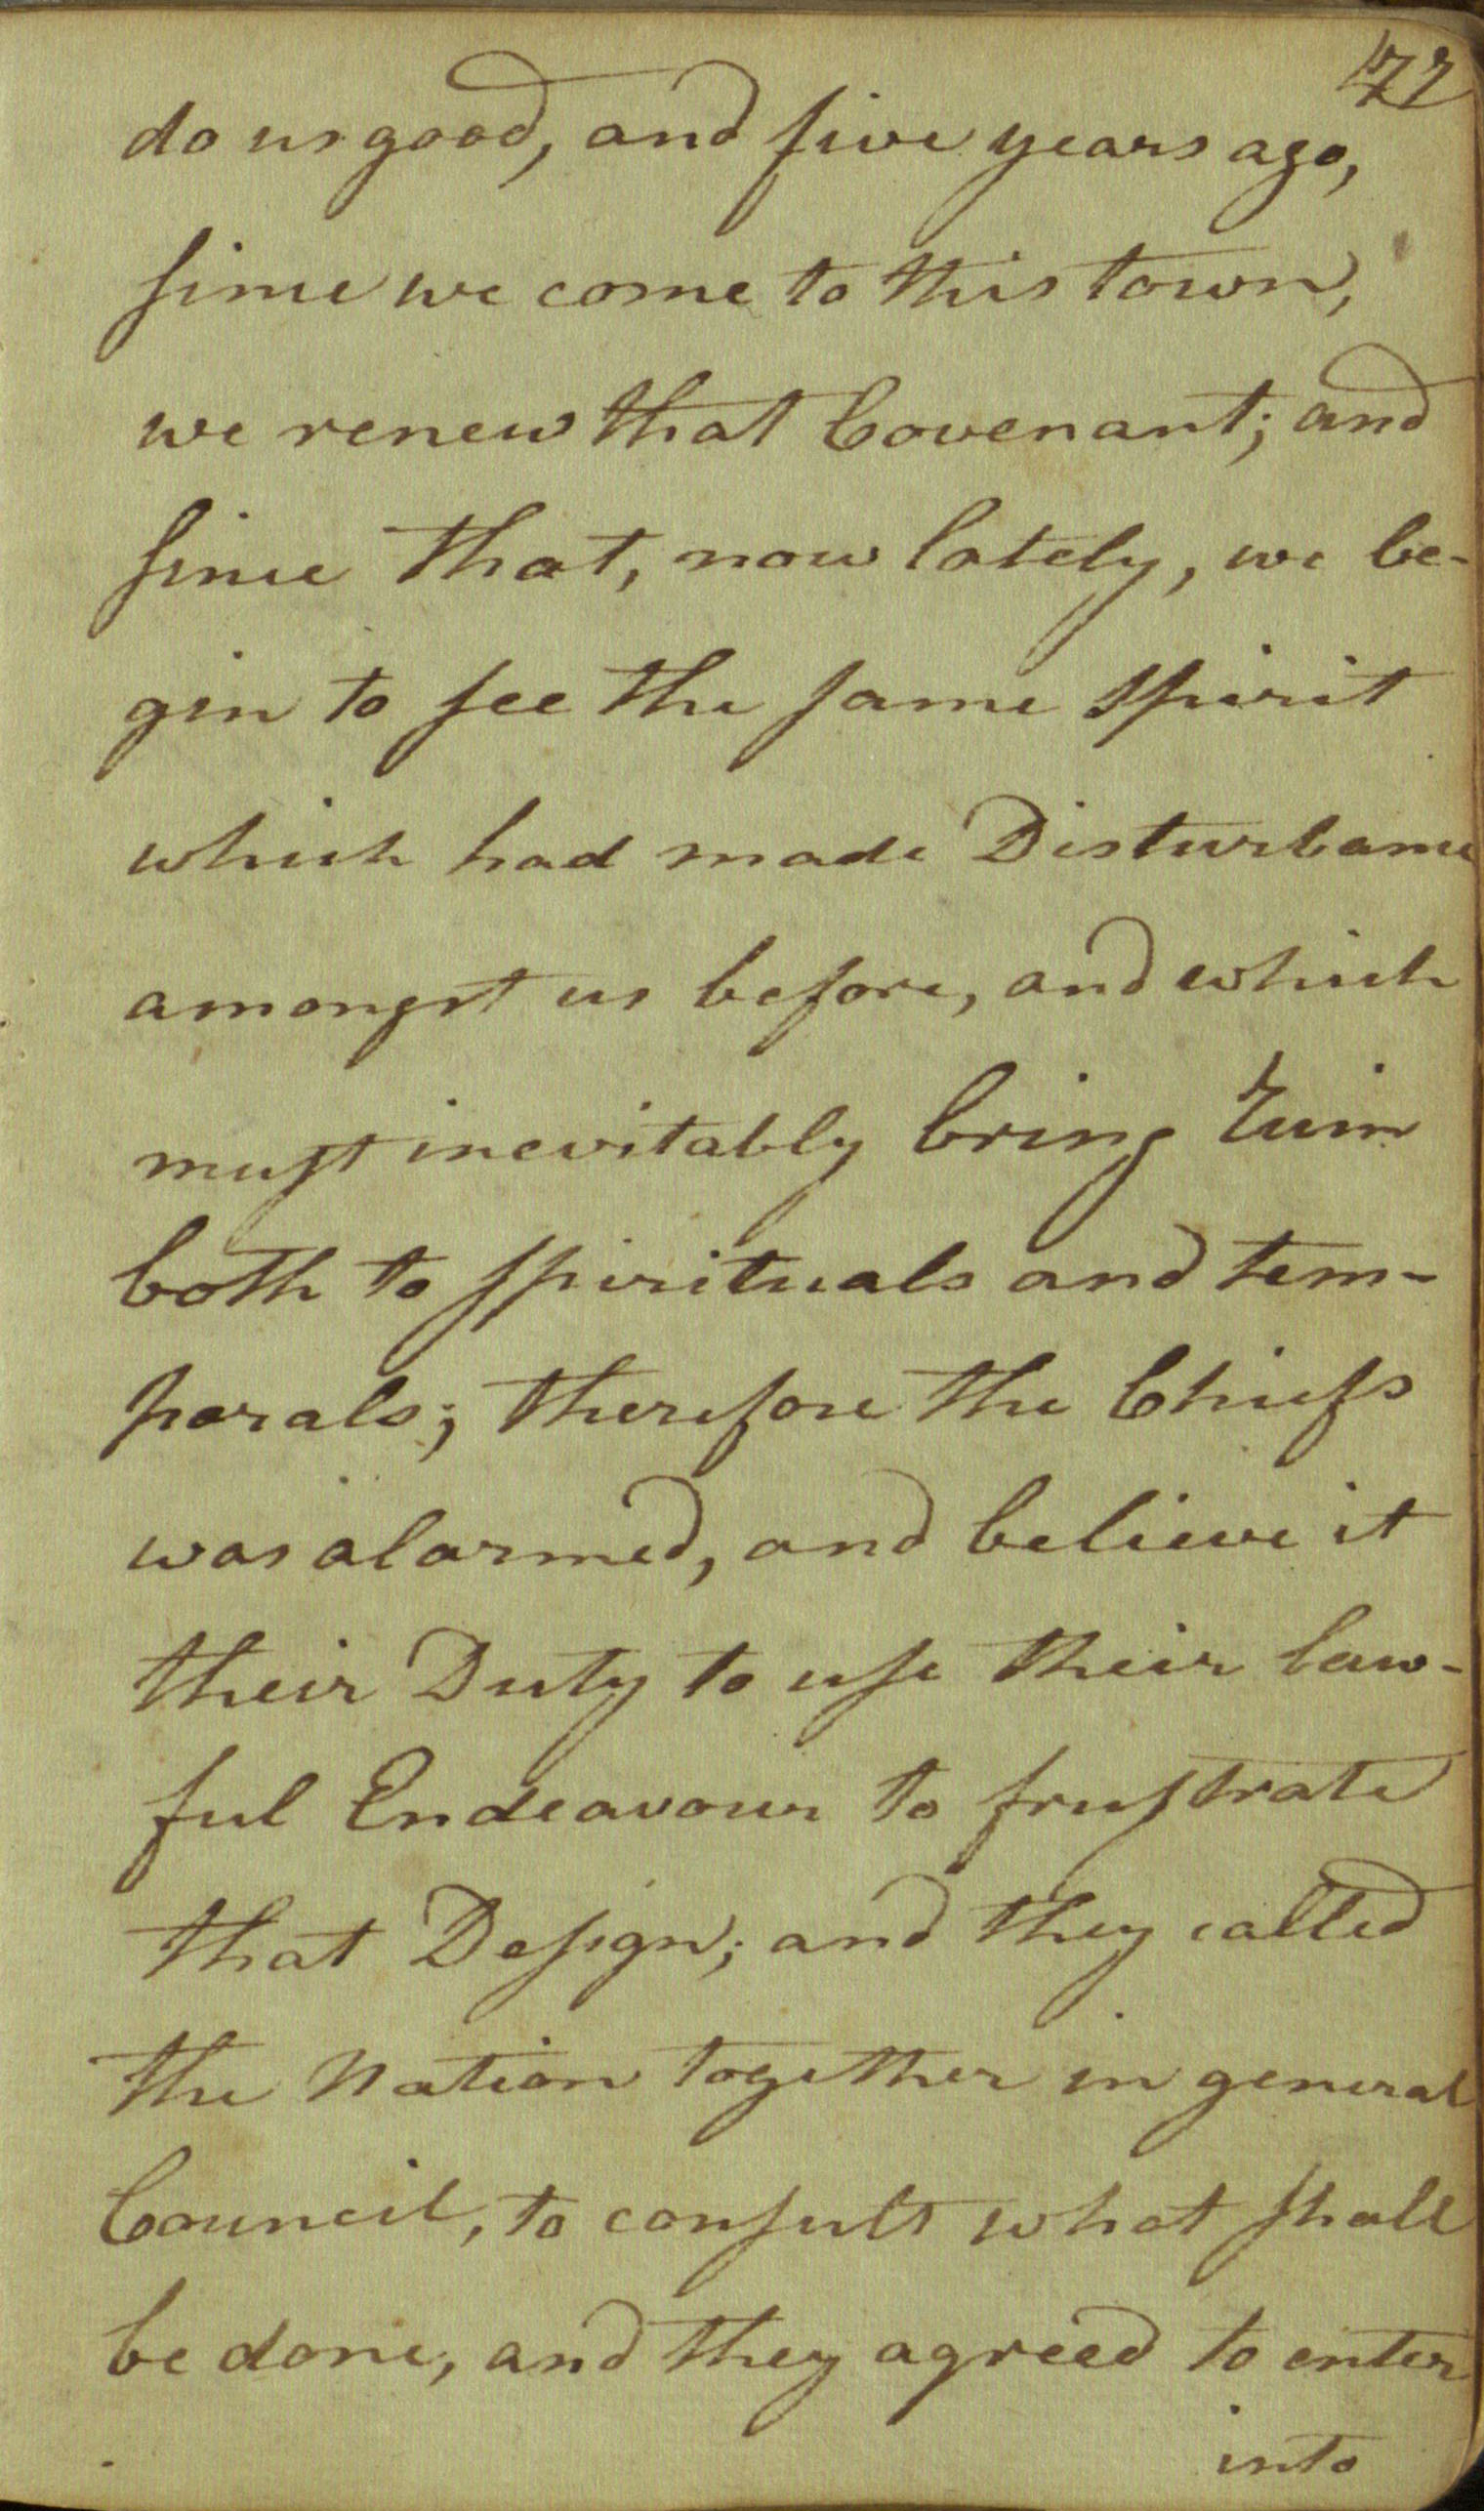 177
do us good, and five years ago,
since we come to this town,
we renew that Covenant; and
since that, now lately, we be-
gin to see the same Spirit
which had made Disturbance
amongst us before, and which
must inevitably bring ruin
both to spirituals and tem-
porals; therefore the Chiefs
was alarmed, and believe it
their Duty to use their law-
ful Endeavour to frustrate
that Design; and they called
the Nation together in general
Council, to consult what shall
be done, and they agreed to enter
into